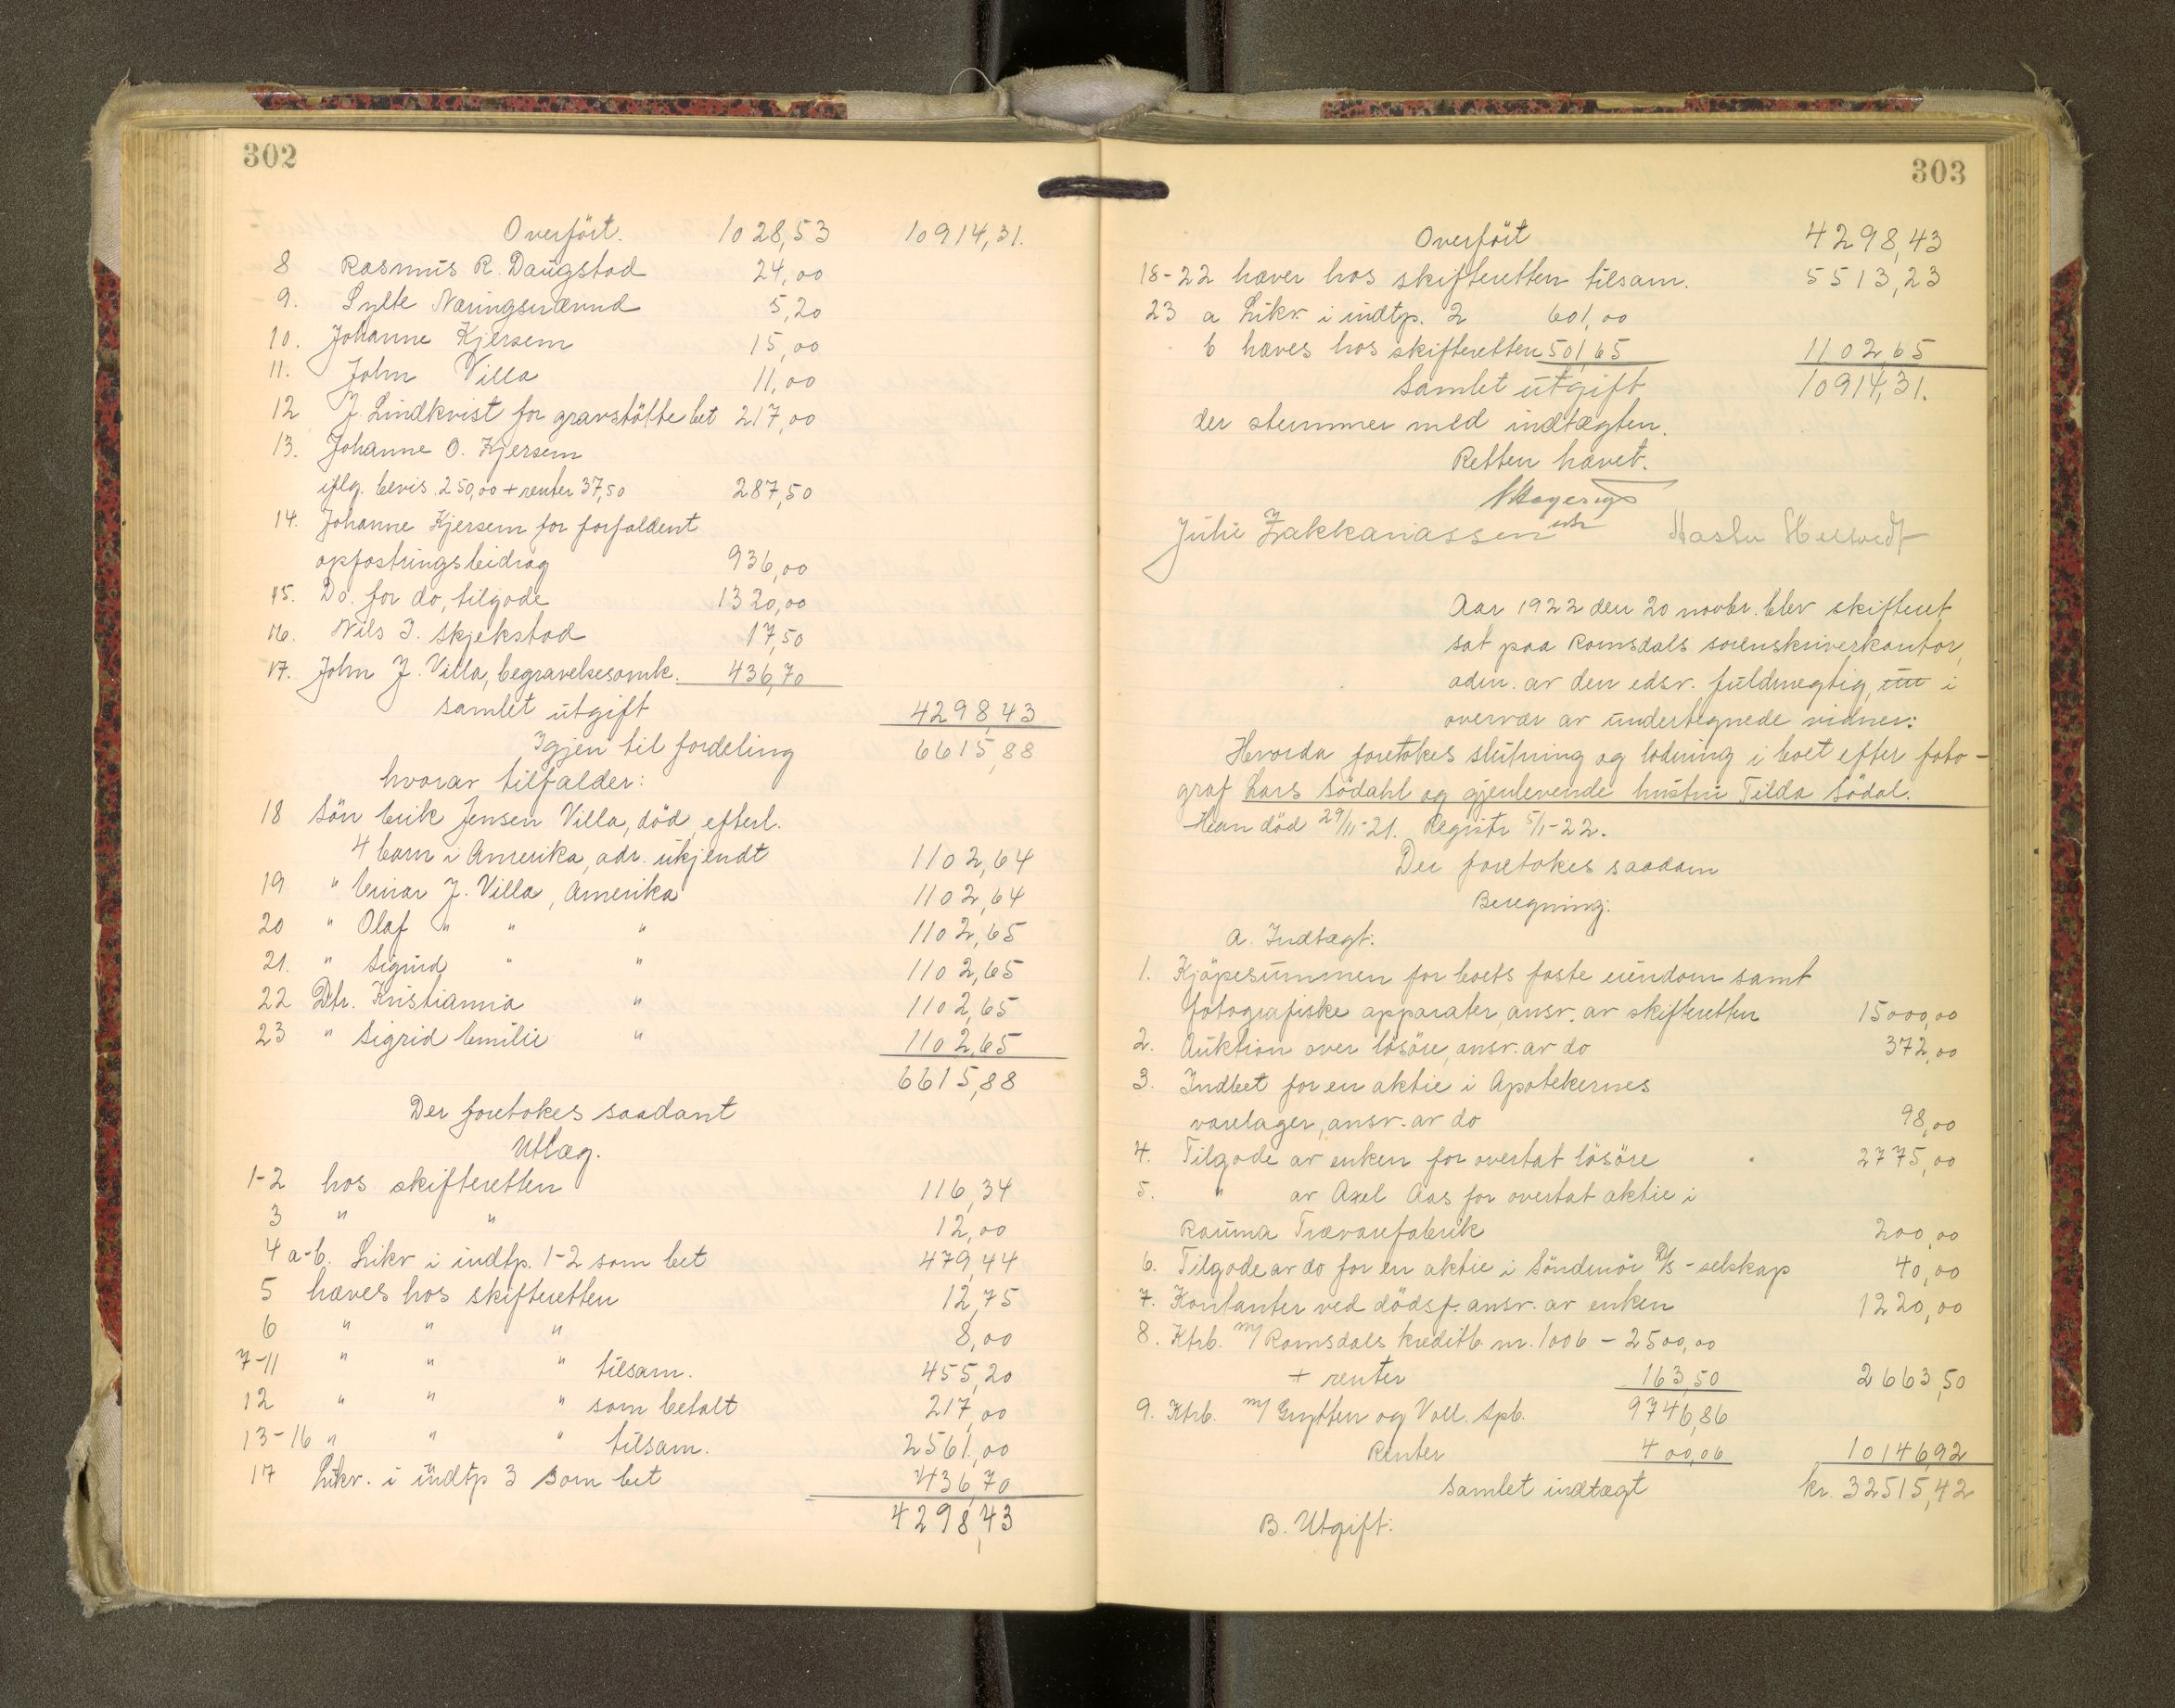 302
Overført. 1028,53 10914,31.
8 Rasmus R. Daugstad 24,00
9. Sylte Næringsnævnd 5,20
10. Johanne Kjersem 15,00
11. John Villa 11,00
12 J. Lindkvist for gravstötte bet 217,00
13. Johanne O. Kjersem
iflg. bevis 250,00 + renter 37,50 287,50
14. Johanne Kjersem for forfaldent
opfostringsbidrag 936,00
15. Do. for do, tilgode 1320,00
16. Nils J. Skjekstad 17,50
17. John J. Villa, begravelsesomk. 436,70
Samlet utgift 4298,43
Igjen til fordeling 6615,88
hvorav tilfalder:
18 Sön Erik Jensen Villa, död, efterl.
4 barn i Amerika, adr. ukjendt 1102,64
19 " Einar J. Villa, Amerika 1102,64
20 " Olaf " " " 1102,65
21. " Sigurd " " 1102,65
22 Dtr. Kristianna " 1102,65
23 " Sigrid Emilie " 1102,65
6615,88
Der foretokes saadant
Utlæg.
1-2 hos skifteretten 116,34
3 " " 12,00
4 a-b. Likv i indtp. 1-2 som bet 479,44
5 hæves hos skifteretten 12,75
6 " " " 8,00
7-11 " " " tilsam. 455,20
12 " " " som betalt 217,00
13-16 " " " tilsam. 2561,00
17 Likv. i indtp 3 som bet 436,70
4298,43
303
Overfört 4298,43
18-22 hæver hos skifteretten tilsam. 5513,23
23 a Likv. i indtp. 2 601,00
b hæves hos skifteretten 501,65 1102,65
Samlet utgift 10914,31.
der stemmer med indtægten.
Retten hævet.
Julie Zakkariassen
Aar 1922 den 20 novbr. blev skifteret
sat paa Romsdals sorenskriverkontor,
adm. av den edsv. fuldmegtig, i
overvær av undertegnede vidner:
Hvorda foretokes slutning og lodning i boet efter foto-
graf Lars Södahl og gjenlevende hustru Tilda Södal.
Han död 29/11-21. Registr 5/1-22.
Der foretokes saadan
Beregning:
A. Indtægt:
1. Kjöpesummen for boets faste eiendom samt
fotografiske apparater, ansv. av skifteretten 15000,00
2. Auktion over lösöre, ansv. av do 372,00
3. Indbet for en aktie i Apotekernes
varelager, ansv. av do 98,00
4. Tilgode av enken for overtat lösöre 2775,00
5. " av Axel Aas for overtat aktie i
Rauma Trævarefabrik 200,00
6. Tilgode av do for en aktie i Söndmör D/S-selskap 40,00
7. Kontanter ved dödsf. ansv. av enken 1220,00
8. Ktrb. m/ Romsdals kreditb. nr. 1006 - 2500,00
+ renter 163,50 2663,50
9. Ktrb. m/ Grytten og Voll. Spb. 9746,86
Renter 400,06 10146,92
Samlet indtægt kr. 32515,42
B. Utgift: